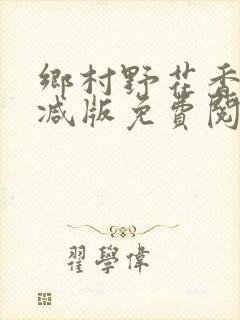 鄉村野花香
减版免費閱
翟學偉